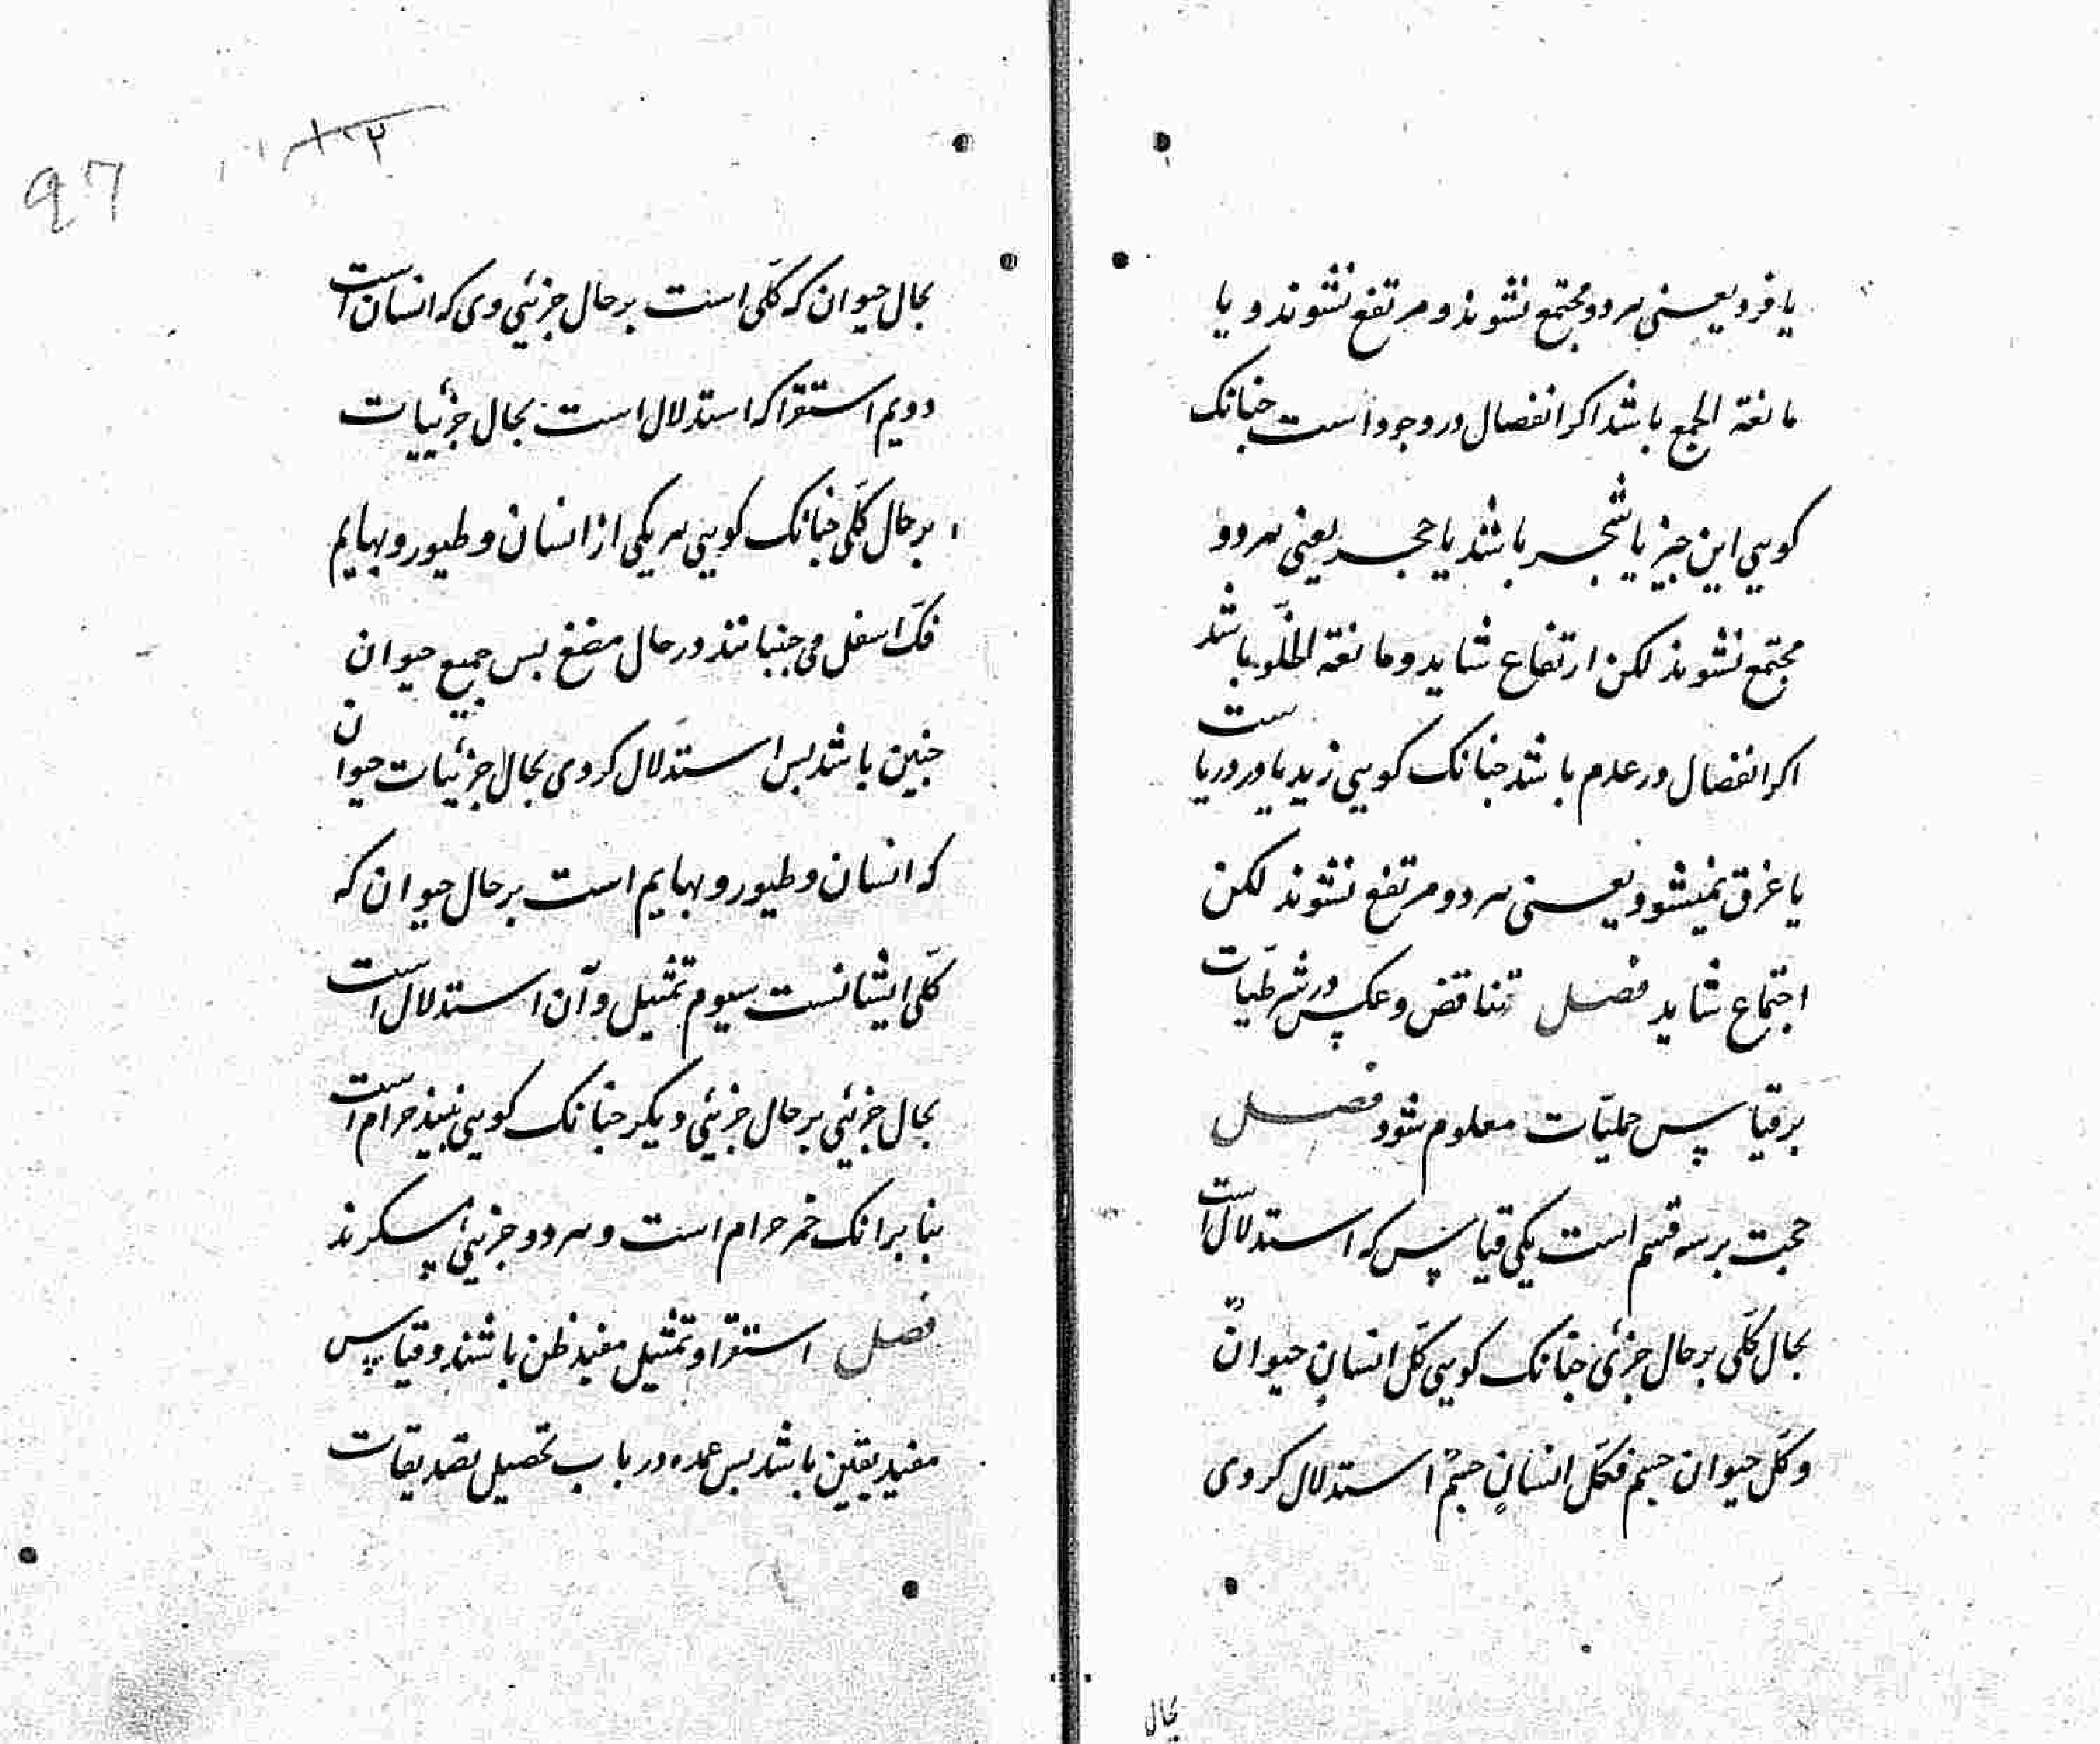 یا فرد یعنی هر دو مجتمع نشوند و مرتفع نشوند و یا
مانعة الجمع باشد اکر انفصال در وجود است جنانک
کویی این جیز یا شجر باشد یا حجر یعنی هر دو
مجتمع نشوند لکن ارتفاع شاید و مانعة الخلوّ باشد
اکر انفصال در عدم باشد جنانک کویی زید یا در دریاست
یا غرق نمیشود یعنی هر دو مرتفع نشوند لکن
اجتماع شاید فصل تناقض و عکس در شرطیّات
بر قیاس حملیّات معلوم شود فصل
حجت بر سه قسم است یکی قیاس که استدلال است
بحال کلّی بر حال جزئی جنانک کویی کلّ انسانٍ حیوانٌ
و کلّ حیوان جسم فکلّ انسانٍ جسمٌ استدلال کردی
بحال
97
بحال حیوان که کلّی است بر حال جزئی وی که انسان است
دویم استقرا که استدلال است بحال جزئییات
بر حال کلّی جنانک کویی هر یکی از انسان و طیور و بهایم
فکّ اسفل می جنبانند در حال مضغ بس جمیع حیوان
جنین باشد بس استدلال کردی بحال جزئیات حیوان
که انسان و طیور و بهایم است بر حال حیوان که
کلّی ایشانست سیوم تمثیل و آن استدلال است
بحال جزئی بر حال جزئی دیکر جنانک کویی نبیذ حرام است
بنا بر انک خمر حرام است و هر دو جزئی مسکرند
فصل استقرا و تمثیل مفید ظن باشند و قیاس
مفید یقین باشد بس عمده در باب تحصیل تصدیقات